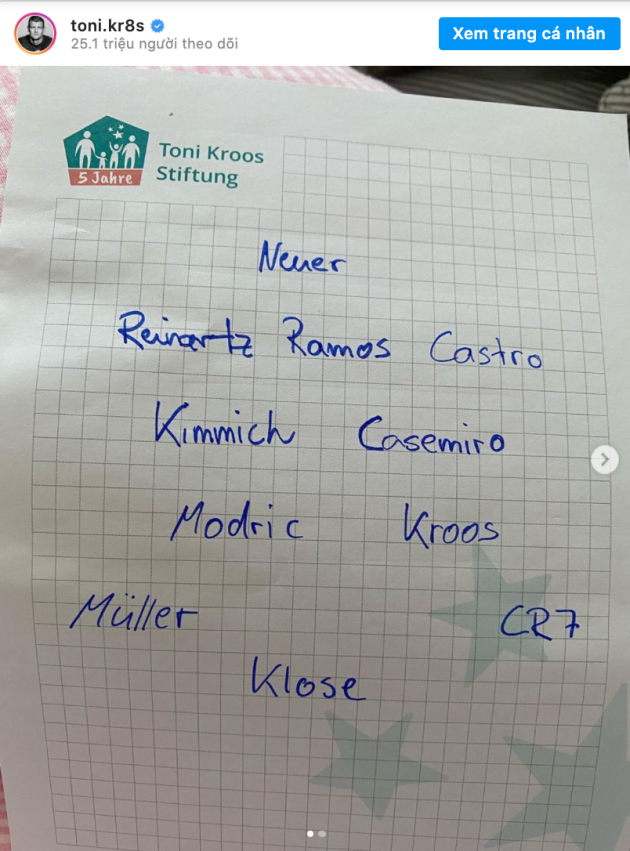 toni.kr8s
25.1 triệu người theo dõi
Xem trang cá nhân
Toni Kroos
Stiftung
5 Jahre
Neuer
Reinartz Ramos Castro
Kimmich Casemiro
Modric Kroos
Müller CR7
Klose